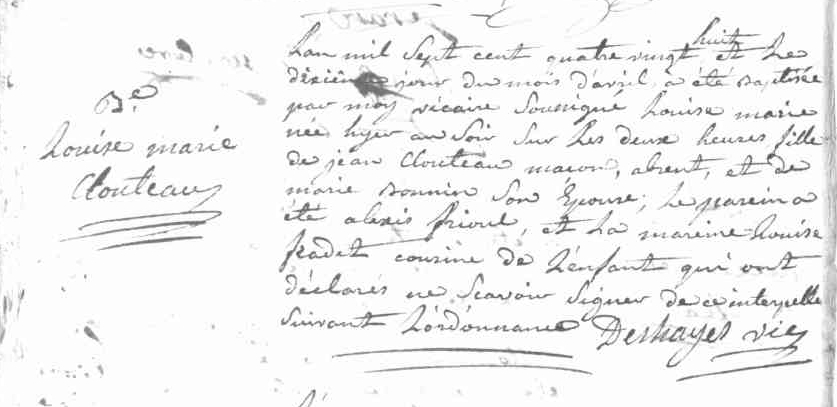 Be
Louise marie
Clouteau
huit
L'an mil sept cent quatre vingt et Le
dixième jour du mois d'avril a été Baptisée
par moy vicaire Soussigné Louise marie
née hyer au Soir Sur Les deux heures, fille
de jean Clouteau macon, absent, et de
marie Bonnin Son Epouse; Le parein a
été alexis frioul, et La mareine Louise
fradet cousine de L'enfant qui ont
déclarés ne Scavoir Signer de ce interpellé
Suivant L'ordonnance Deshayes vic